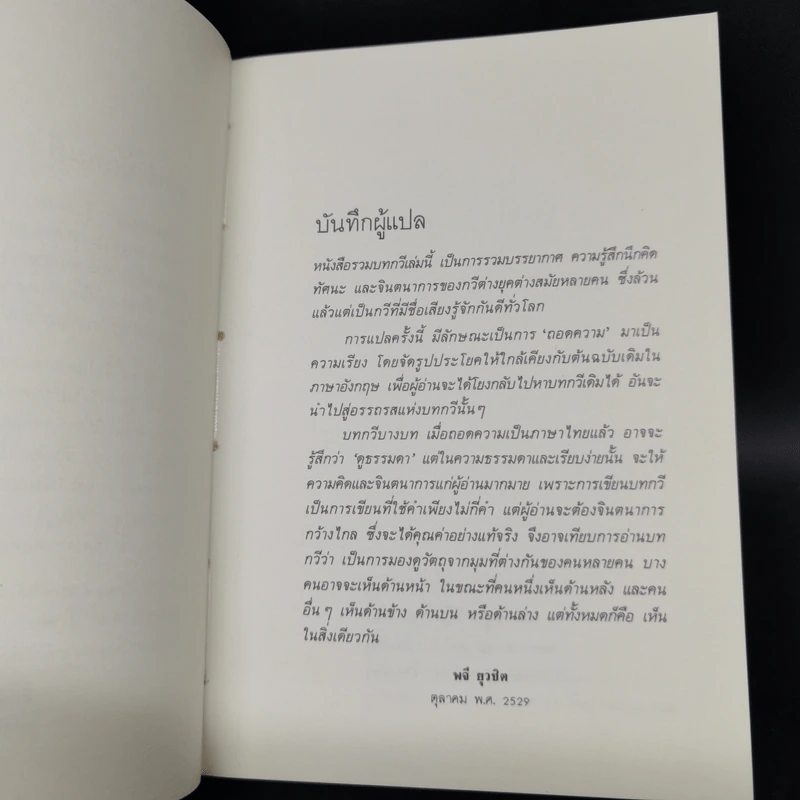 บันทึกผู้แปล
หนังสือรวมบทกวีเล่มนี้ เป็นการรวมบรรยากาศ ความรู้สึกนึกคิด
ทัศนะ และจินตนาการของกวีต่างยุคต่างสมัยหลายคน ซึ่งล้วน
แล้วแต่เป็นกวีที่มีชื่อเสียงรู้จักกันดีทั่วโลก
การแปลครั้งนี้ มีลักษณะเป็นการ ‘ถอดความ’ มาเป็น
ความเรียง โดยจัดรูปประโยคให้ใกล้เคียงกับต้นฉบับเดิมใน
ภาษาอังกฤษ เพื่อผู้อ่านจะได้โยงกลับไปหาบทกวีเดิมได้ อันจะ
นำไปสู่อรรถรสแห่งบทกวีนั้นๆ
บทกวีบางบท เมื่อถอดความเป็นภาษาไทยแล้ว อาจจะ
รู้สึกว่า ‘ดูธรรมดา’ แต่ในความธรรมดาและเรียบง่ายนั้น จะให้
ความคิดและจินตนาการแก่ผู้อ่านมากมาย เพราะการเขียนบทกวี
เป็นการเขียนที่ใช้คำเพียงไม่กี่คำ แต่ผู้อ่านจะต้องจินตนาการ
กว้างไกล ซึ่งจะได้คุณค่าอย่างแท้จริง จึงอาจเทียบการอ่านบท
กวีว่า เป็นการมองดูวัตถุจากมุมที่ต่างกันของคนหลายคน บาง
คนอาจจะเห็นด้านหน้า ในขณะที่คนหนึ่งเห็นด้านหลัง และคน
อื่นๆ เห็นด้านข้าง ด้านบน หรือด้านล่าง แต่ทั้งหมดก็คือ เห็น
ในสิ่งเดียวกัน
พจี ยุวชิต
ตุลาคม พ.ศ. 2529